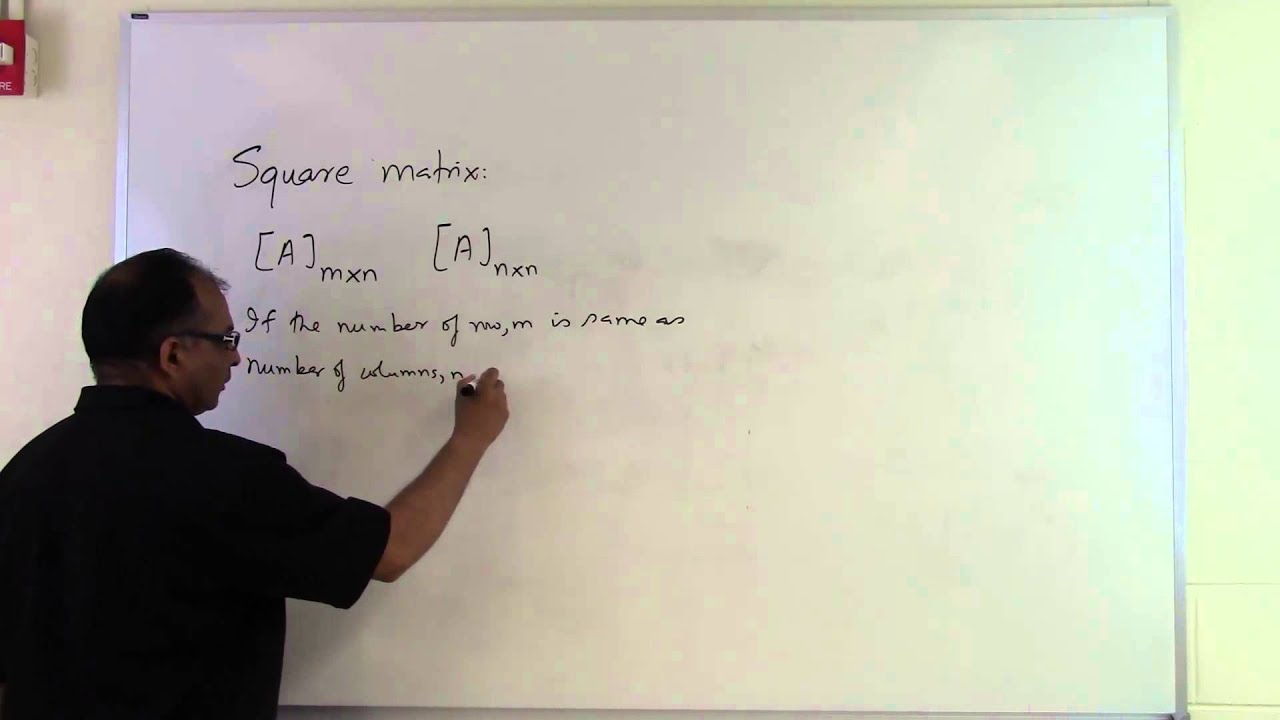 Square matrix:
[A]m×n [A]n×n
If the number of row, m is same as
number of columns, n
RE